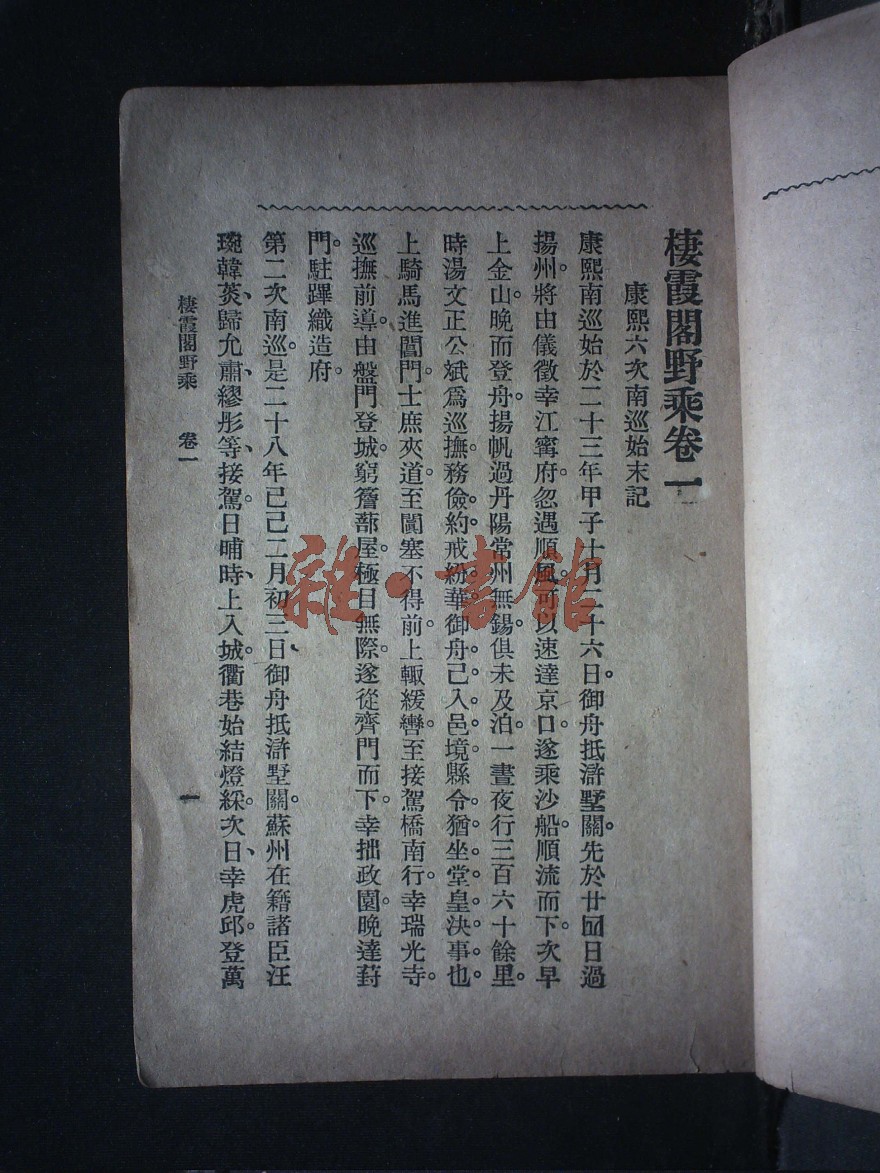 棲霞閣野乘卷一
康熙六次南巡始末記
康熙南巡始於二十三年甲子十月二十六日。御舟抵滸墅關。先於廿四日過
揚州。將由儀徵幸江寗府。忽遇順風。可以速達京口。遂乘沙船。順流而下。次早
上金山。晚而登舟。揚帆過丹陽常州無錫。俱未及泊。一晝夜行三百六十餘里。
時湯文正公斌爲巡撫。務儉約。戒紛華。御舟已入邑境。縣令猶坐堂皇決事也。
上騎馬進閶門。士庶夾道。至闐塞不得前。上輙緩轡。至接駕橋南行。幸瑞光寺。
巡撫前導。由盤門登城。窮簷蔀屋。極目無際。遂從齊門而下。幸拙政園。晚達葑
門。駐蹕織造府。
第二次南巡。是二十八年己巳二月初三日、御舟抵滸墅關。蘇州在籍諸臣汪
琬韓菼、歸允肅、繆彤等、接駕。日晡時、上入城。衢巷始結燈綵。次日、幸虎邱。登萬
棲霞閣野乘　卷一
一
雜·書館